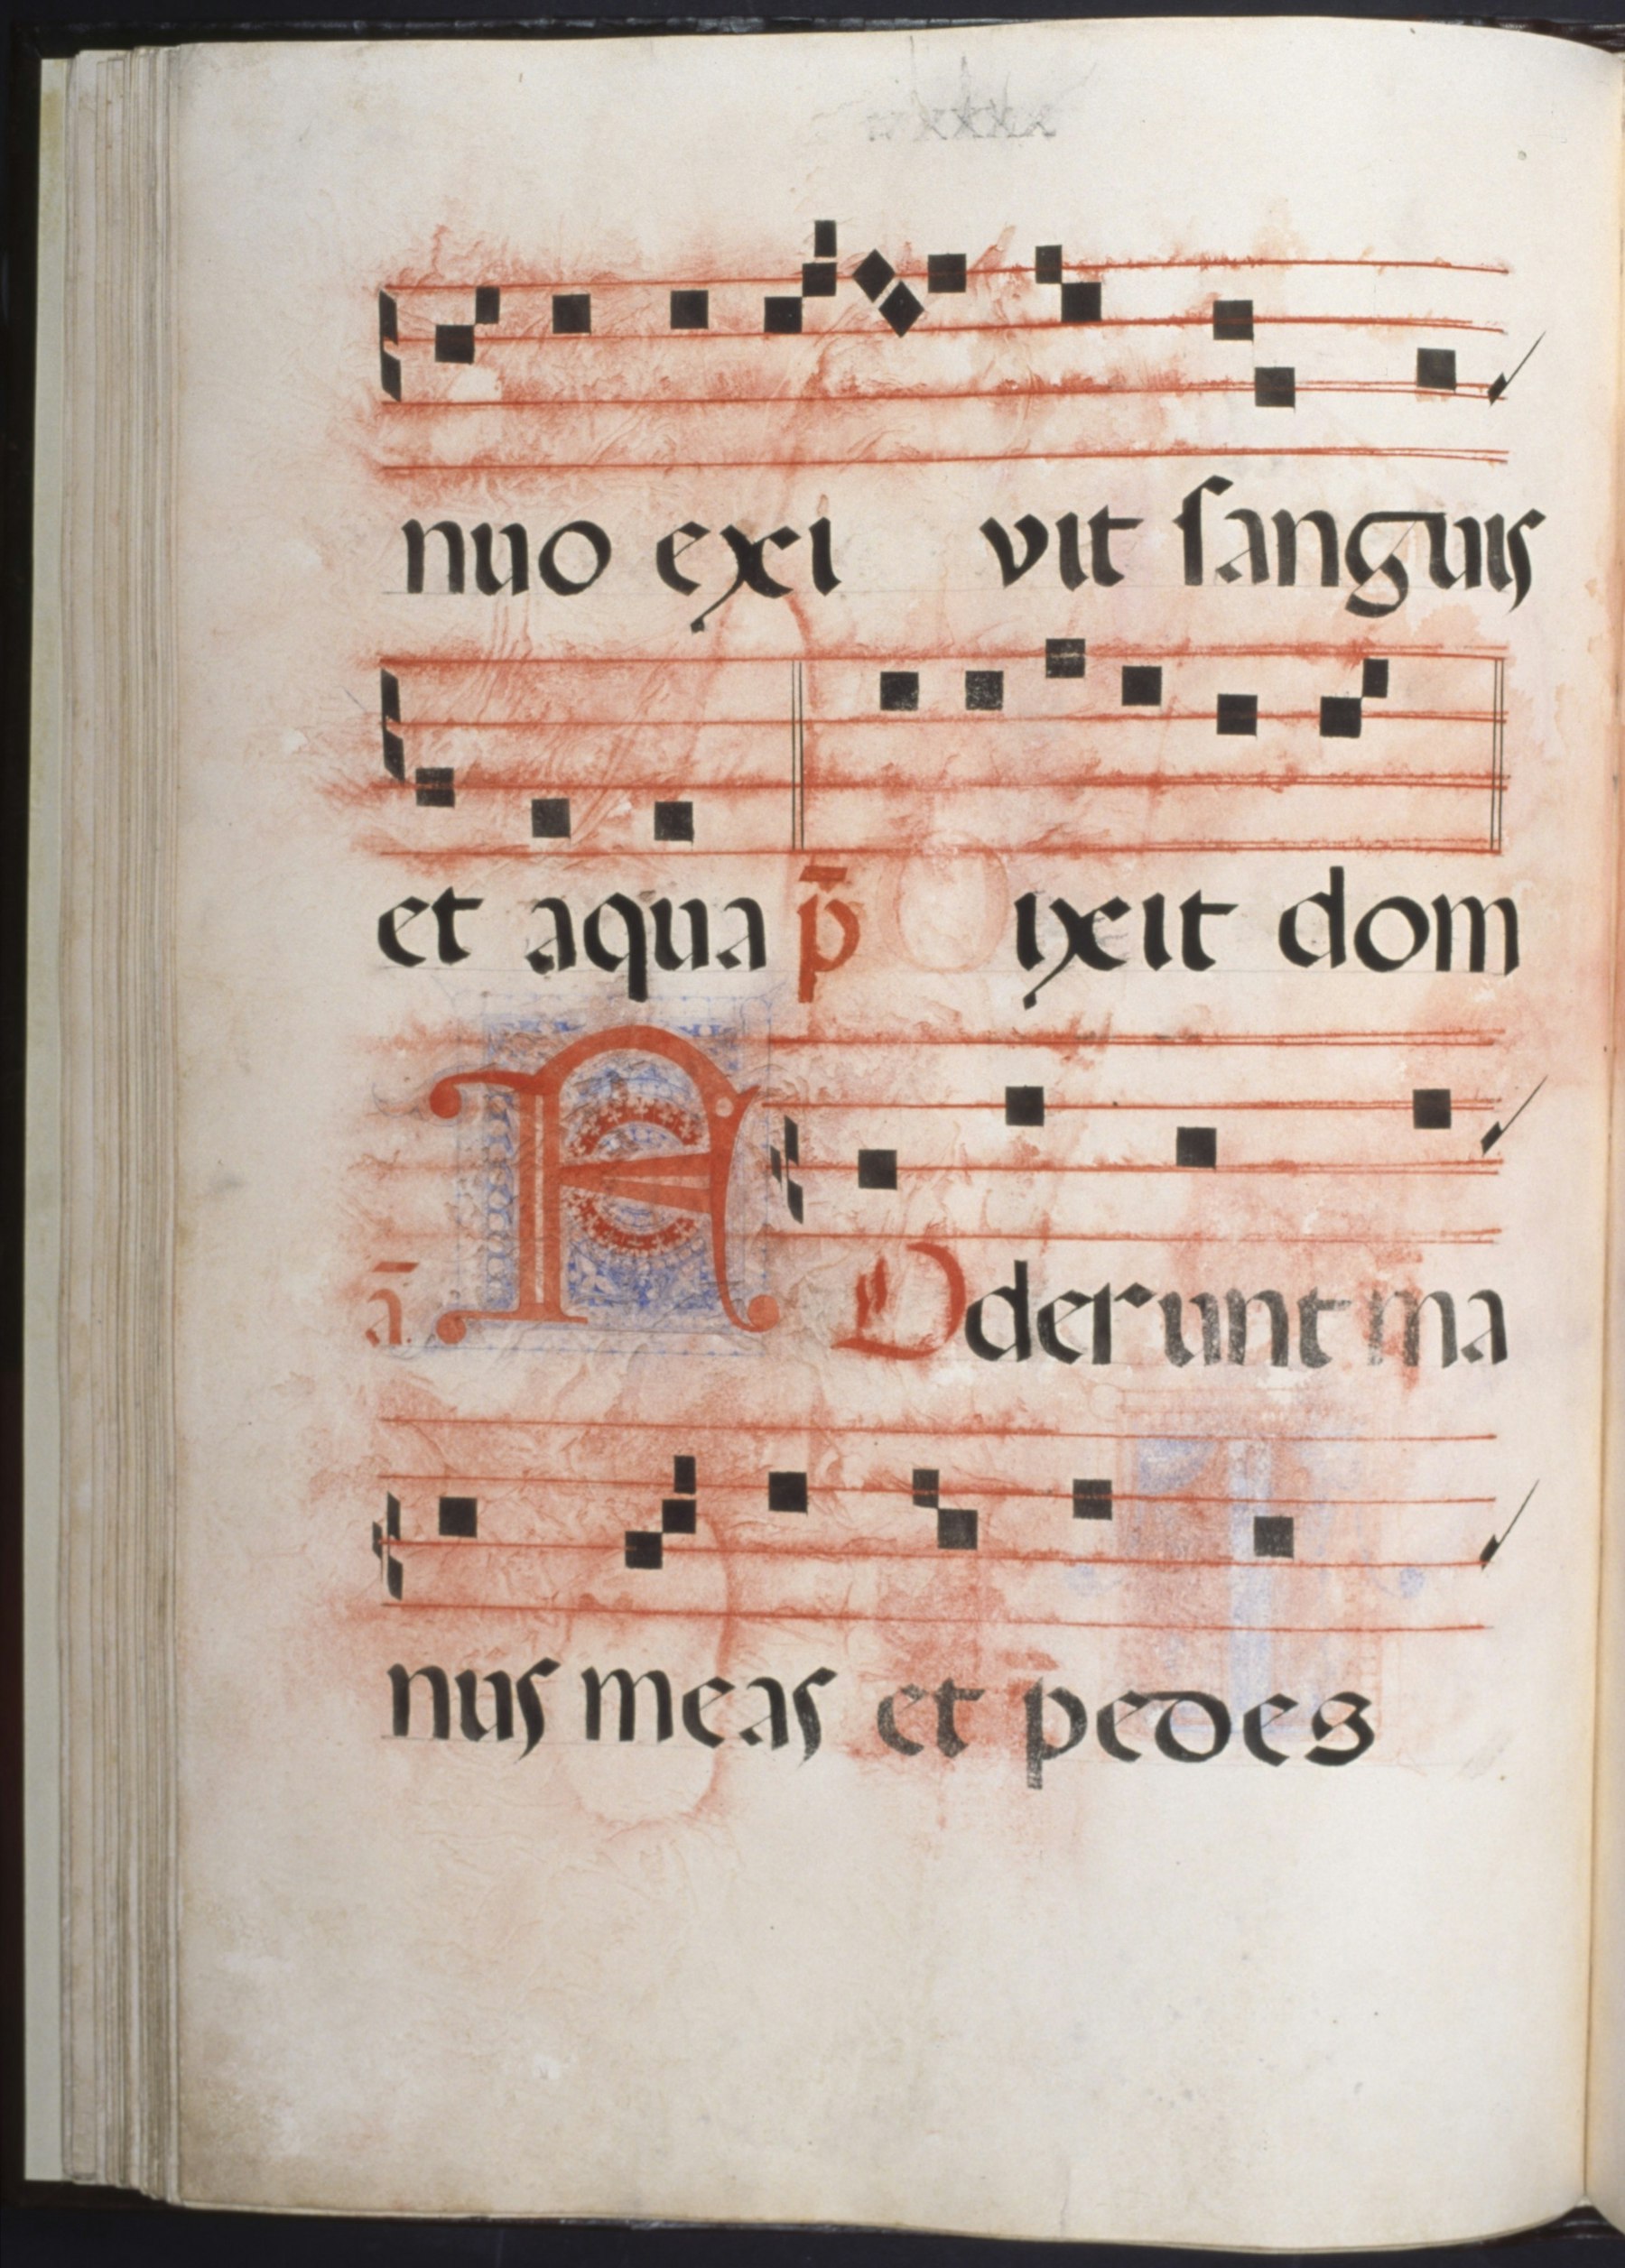 nuo exi vit sanguis
et aqua p̄ Dixit dom
ā. F Oderunt ma
nus meas et pedes